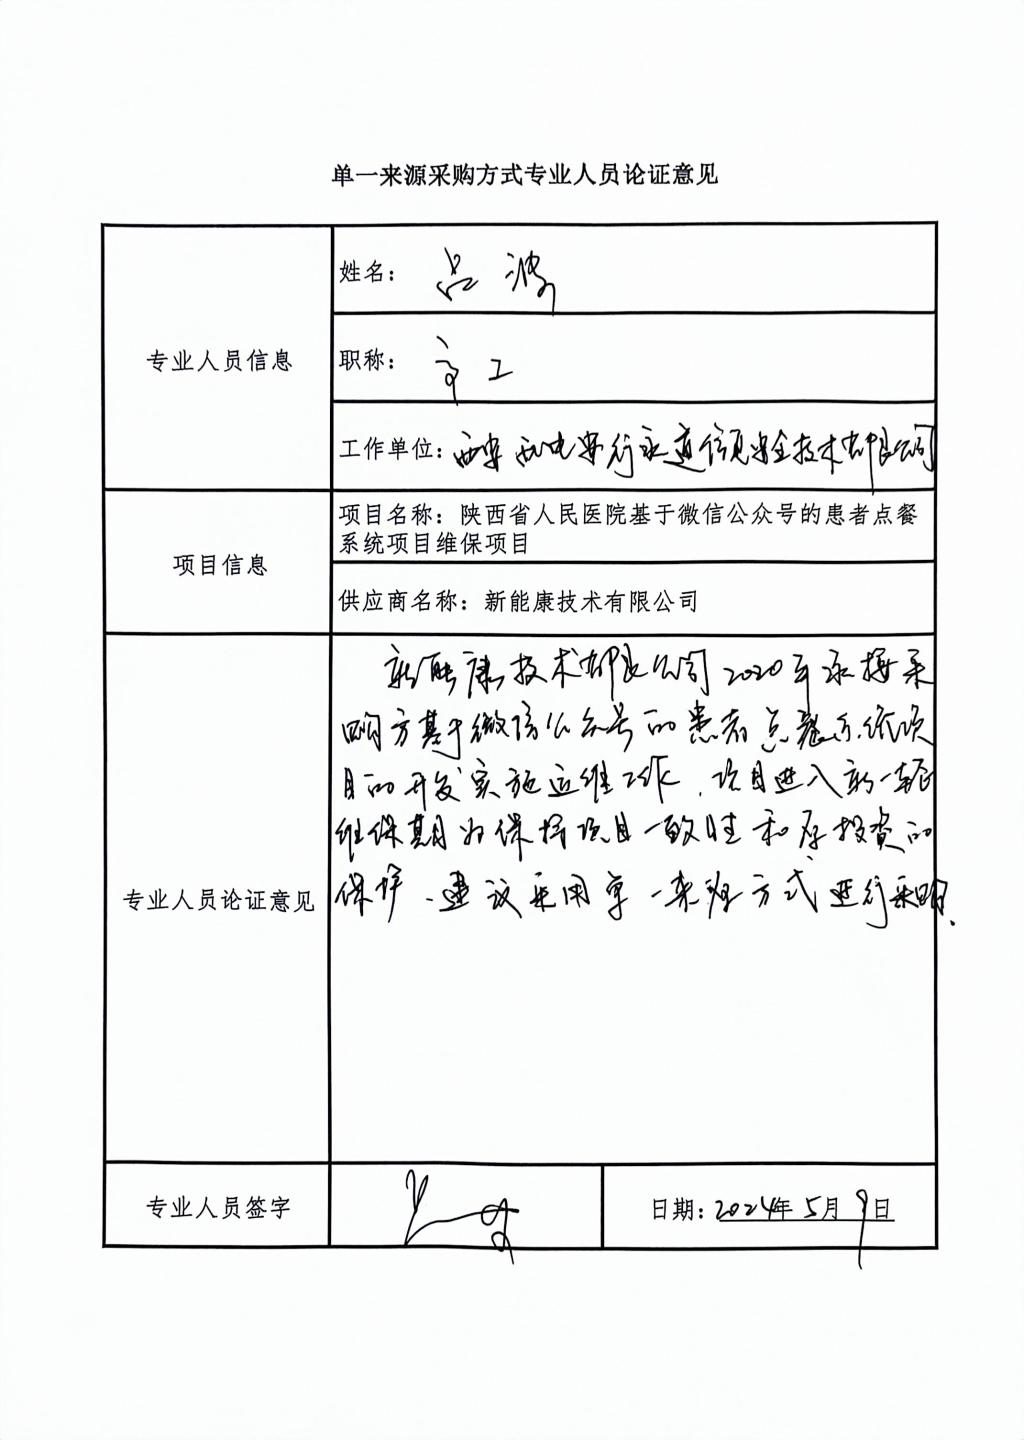 单一来源采购方式专业人员论证意见
专业人员信息
姓名：吕波
职称：高工
工作单位：西安西电安行永道信息安全技术有限公司
项目信息
项目名称：陕西省人民医院基于微信公众号的患者点餐
系统项目维保项目
供应商名称：新能康技术有限公司
专业人员论证意见
新能康技术有限公司2020年承接采
购方基于微信公众号的患者点餐系统项
目的开发实施运维工作，项目进入新一轮
维保期为保持项目一致性和原投资的
保护、建议采用单一来源方式进行采购.
专业人员签字
日期：2024年5月9日